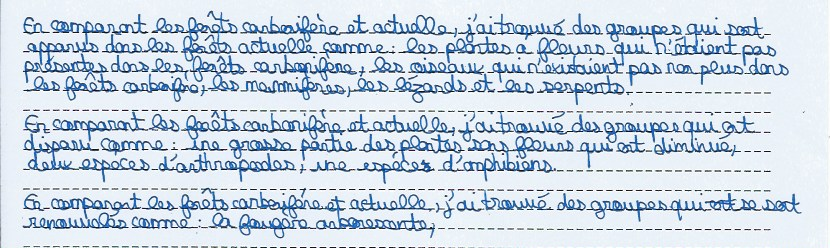 En comparant les forêts carbonifère et actuelle, j'ai trouvé des groupes qui sont
apparus dans les forêts actuelle comme : les plantes a fleurs qui n'étaient pas
présentes dans les forêts carbonifère, les oiseaux qui n'existaient pas non plus dans
les forêts carbonifère, les mammifères, les lézards et les serpents.
En comparant les forêts carbonifère et actuelle, j'ai trouvé des groupes qui ont
disparu comme : une grosse partie des plantes sans fleurs qui ont diminué,
deux espèces d'arthropodes, une espèces d'amphibiens.
En comparant les forêts carbonifère et actuelle, j'ai trouvé des groupes qui se sont
renouvelés comme : la fougère arboresante,